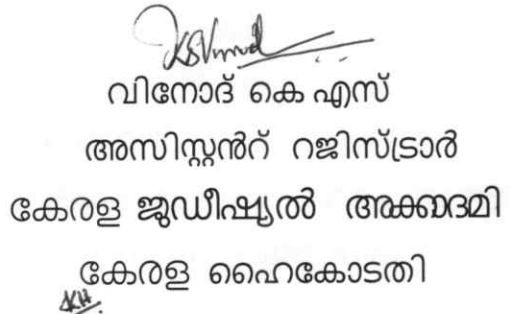 വിനോദ് കെ എസ്
അസിസ്റ്റൻറ് റജിസ്ട്രാർ
കേരള ജുഡീഷ്യൽ അക്കാദമി
കേരള ഹൈകോടതി